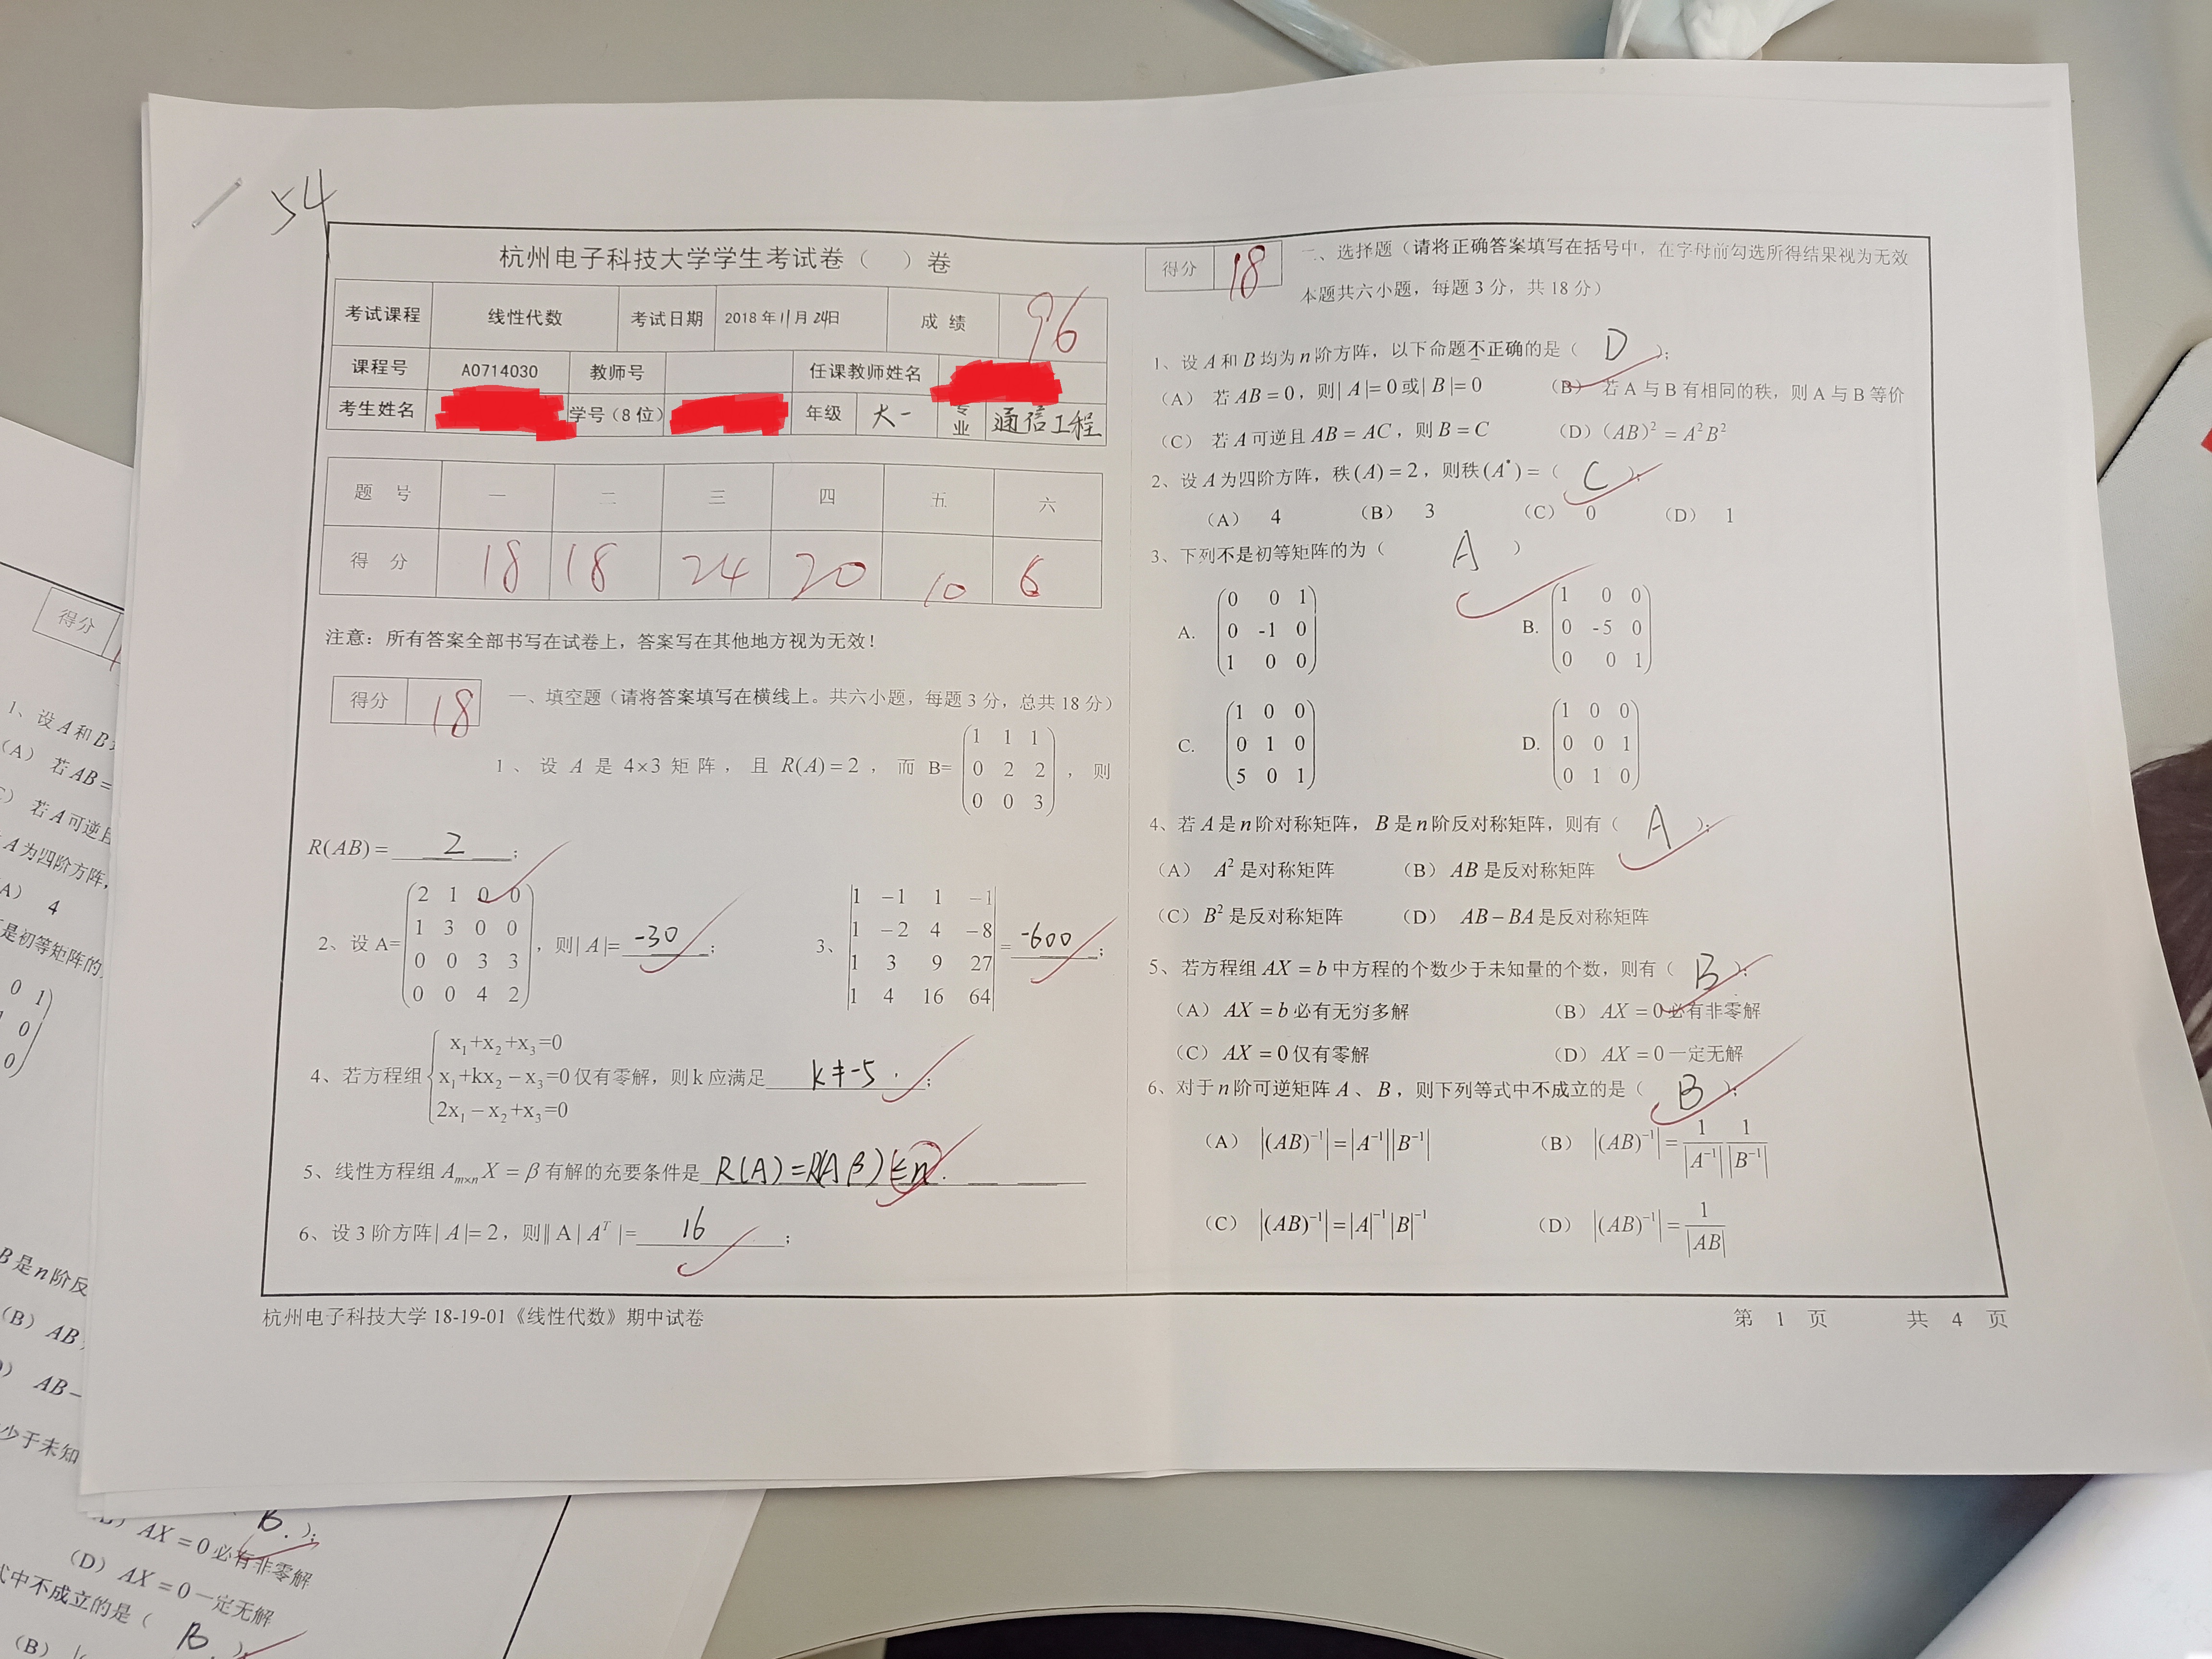 54
杭州电子科技大学学生考试卷（ ）卷
考试课程 线性代数 考试日期 2018年11月24日 成绩 96
课程号 A0714030 教师号 任课教师姓名
考生姓名 学号(8位) 年级 大一 专业 通信工程
题 号 一 二 三 四 五 六
得 分 18 18 24 20 10 6
注意：所有答案全部书写在试卷上，答案写在其他地方视为无效！
得分 18
一、填空题（请将答案填写在横线上。共六小题，每题3分，总共18分）
1、设 A 是 4×3 矩阵，且 R(A)=2，而 B=
1 1 1
0 2 2
0 0 3
，则
R(AB)= 2 ；
2、设A=
2 1 0 0
1 3 0 0
0 0 3 3
0 0 4 2
，则|A|= -30 ；
3、
1 −1 1 −1
1 −2 4 −8
1 3 9 27
1 4 16 64
= -600 ；
4、若方程组
x₁+x₂+x₃=0
x₁+kx₂−x₃=0
2x₁−x₂+x₃=0
仅有零解，则k应满足 k≠-5 . ；
5、线性方程组 Aₘₓₙ X = β 有解的充要条件是 R(A)=R(A β)≤n.
6、设3阶方阵|A|=2，则||A|Aᵀ|= 16 ；
杭州电子科技大学 18-19-01《线性代数》期中试卷
得分 18
二、选择题（请将正确答案填写在括号中，在字母前勾选所得结果视为无效
本题共六小题，每题3分，共18分）
1、设 A 和 B 均为 n 阶方阵，以下命题不正确的是（ D ）；
（A） 若 AB=0，则|A|=0或|B|=0 （B） 若A与B有相同的秩，则A与B等价
（C） 若 A 可逆且 AB=AC，则 B=C （D）(AB)²=A²B²
2、设 A 为四阶方阵，秩(A)=2，则秩(A*)=（ C ）；
（A） 4 （B） 3 （C） 0 （D） 1
3、下列不是初等矩阵的为（ A ）
A.
0 0 1
0 -1 0
1 0 0
B.
1 0 0
0 -5 0
0 0 1
C.
1 0 0
0 1 0
5 0 1
D.
1 0 0
0 0 1
0 1 0
4、若 A 是 n 阶对称矩阵，B 是 n 阶反对称矩阵，则有（ A ）；
（A） A² 是对称矩阵 （B） AB 是反对称矩阵
（C） B² 是反对称矩阵 （D） AB−BA 是反对称矩阵
5、若方程组 AX=b 中方程的个数少于未知量的个数，则有（ B ）；
（A） AX=b 必有无穷多解 （B） AX=0 必有非零解
（C） AX=0 仅有零解 （D） AX=0 一定无解
6、对于 n 阶可逆矩阵 A、B，则下列等式中不成立的是（ B ）；
（A） |(AB)⁻¹|=|A⁻¹||B⁻¹| （B） |(AB)⁻¹|=1/|A⁻¹| 1/|B⁻¹|
（C） |(AB)⁻¹|=|A|⁻¹|B|⁻¹ （D） |(AB)⁻¹|=1/|AB|
第 1 页 共 4 页
得分
1、设 A 和 B
（A） 若 AB=
） 若 A 可逆且
A 为四阶方阵，
A） 4
是初等矩阵的
0 1
1 0
0
B 是 n 阶反
（B） AB
） AB−
少于未知
B. ）；
AX=0 必有非零解
（D） AX=0 一定无解
式中不成立的是（ B. ）
（B）